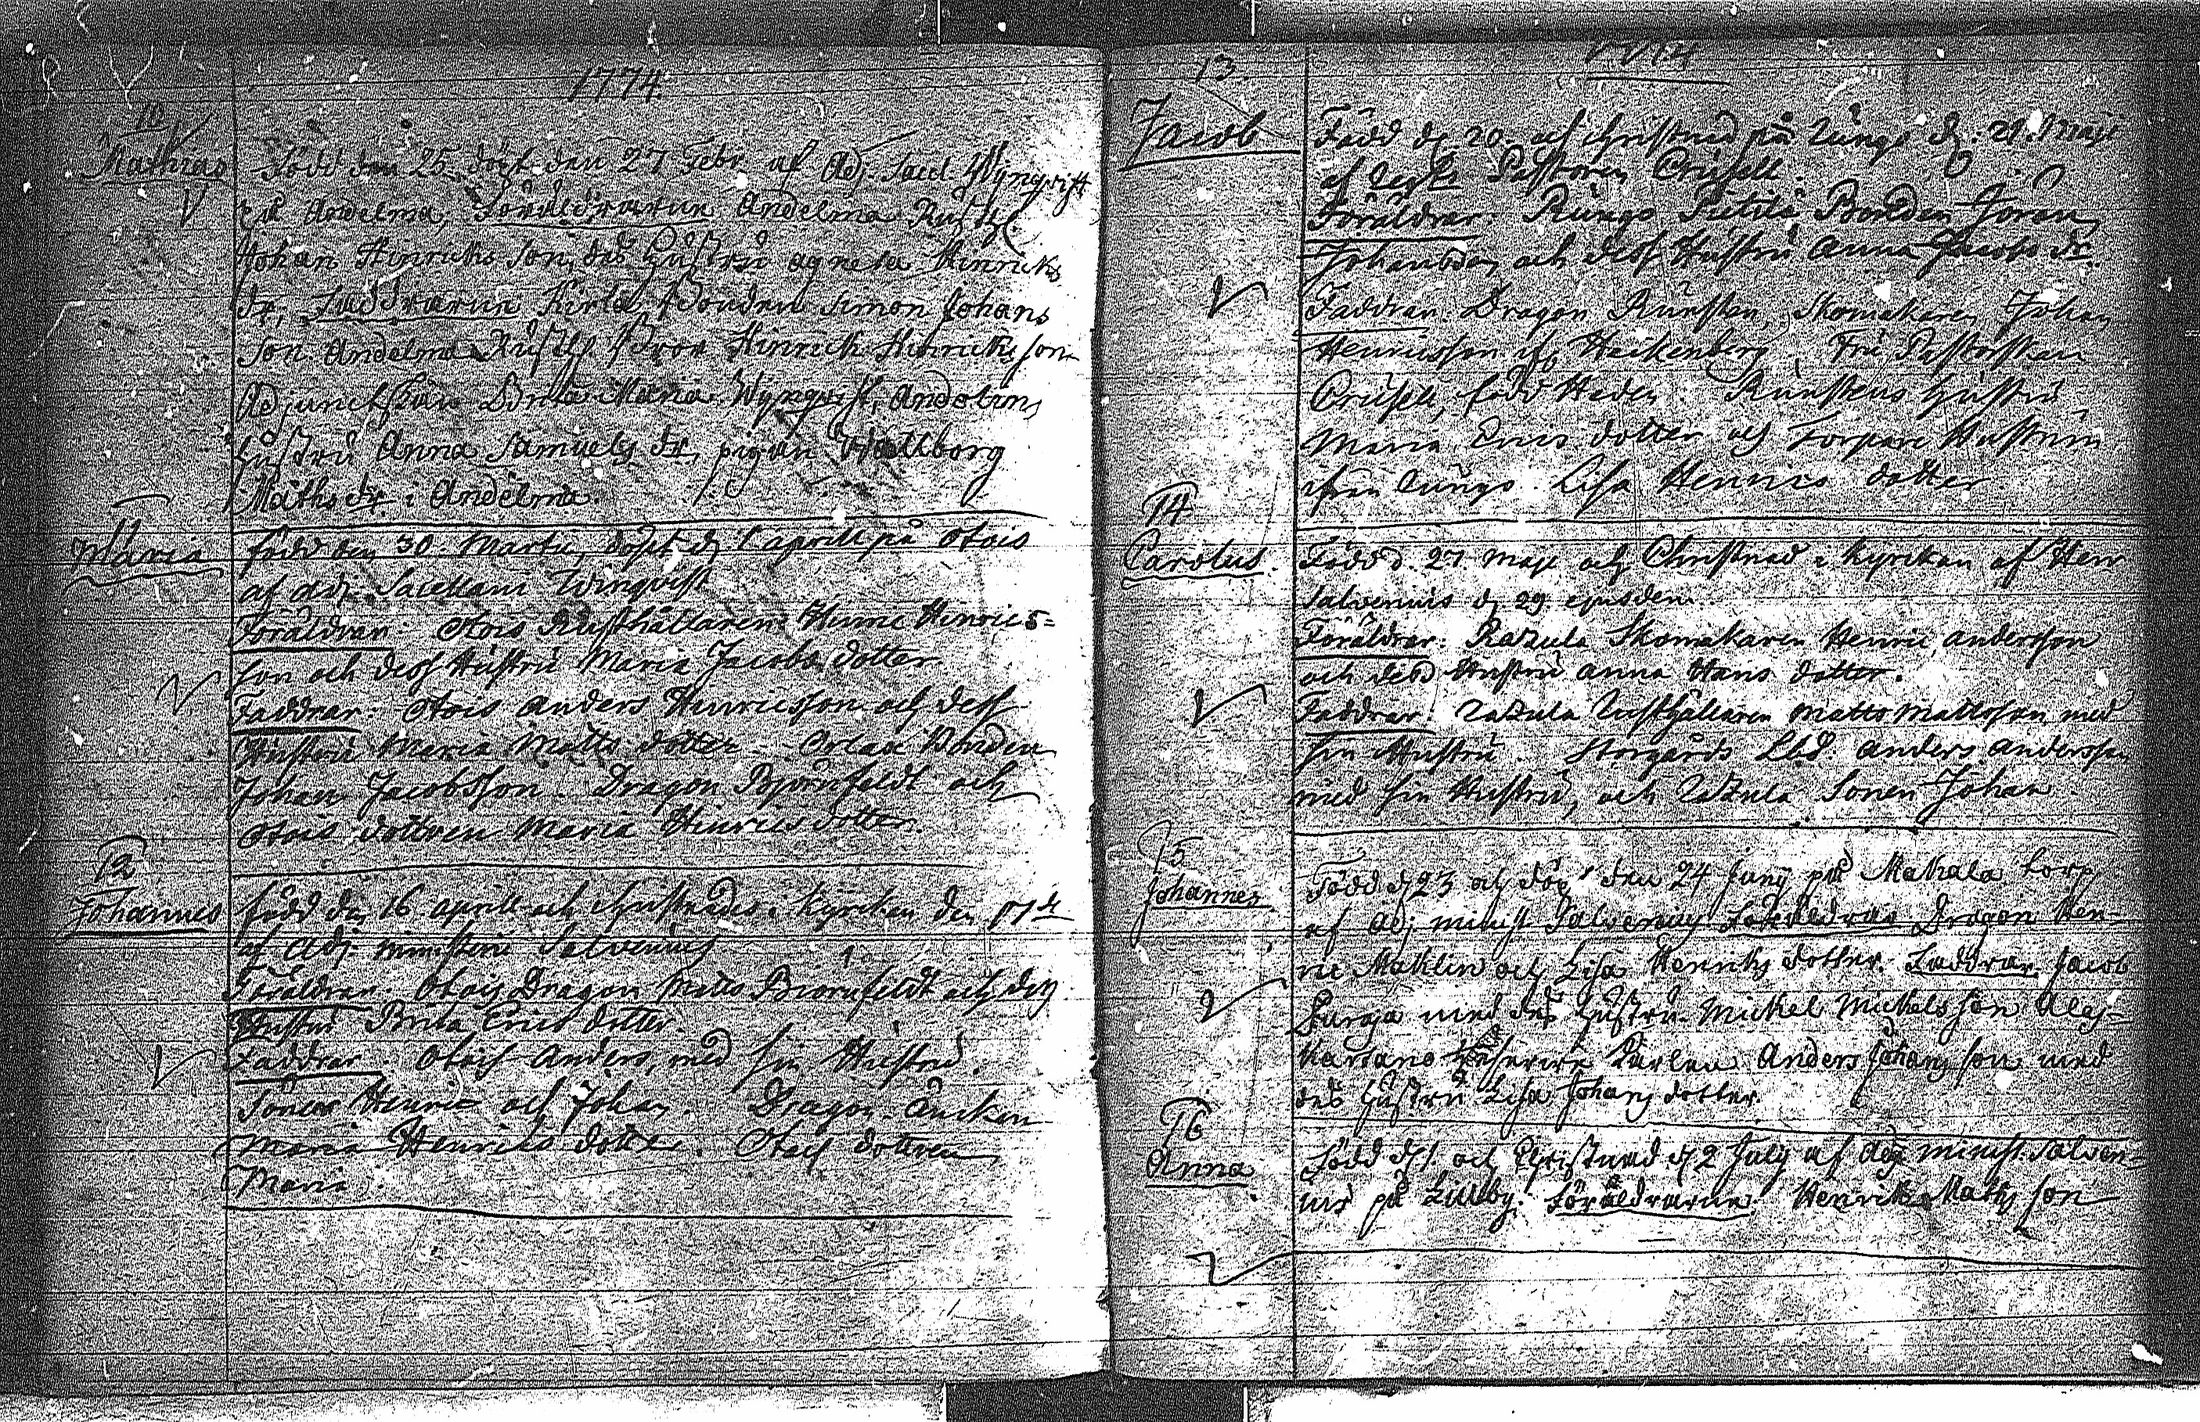 1774.
10
Mathias
Född den 25 döpt den 27 Febr. af Adj. Sacel. Wynqvist
på Andelma, Föräldrarne Andelma Rusth.
Johan Hinrichs son, des Hustru Agneta Hinrichs
dr, Faddrarne Kirla Bonden Simon Johans
son. Andelma Rusth. Bror Hinrich Hinrichsson
Adjunctskan Maria Wynqvist, Andelma
Hustru Anna Samuels dr, pigan Wallborg
Mathsdr. i Andelma.
11
Maria
född den 30 Martii, döpt d. 1 aprill på Otois
af adj. Sacellani Winqvist
Föräldrar. Otois Rusthållaren Henric Henrics=
son och dess Hustru Maria Jacobs dotter
Faddrar. Otois Anders Henricsson och dess
Hustru Maria Matts dotter. Bonden
Johan Jacobsson. Dragon Björnfeldt och
Otois dottren Maria Henrics dotter.
12
Johannes
född den 16 aprill och christnades i Kyrckan den 17de
af Adj. ministerii Salvenius
Föräldrar. Otois Dragon Matts Biörnfeldt och des
Hustru Brita Erics dotter.
Faddrar. Otois Anders, med sin Hustru.
Sönen Henric och Johan. Dragon Änckan
Maria Henrichs dotter. Otois dottren
Maria.
1774
13
Jacob
Född d. 20 och christnad på Runge d. 21 Maji
af Pastoren Crusell.
Föräldrar. Runge Pietilä Bonden Jöran
Johansson och dess Hustru Anna Jacobs dr.
Faddrar. Dragon Runsten, Skomakaren Johan
Henricsson af Heikenberg. Fru Pastorskan
Crusell, född Heden. Runstens Hustru
Maria Erics dotter och Torpare Hustrun
ifrån Runge Lisa Henrics dotter
14
Carolus
Född d. 27 Maji och Christnad i Kyrckan af Herr
Salvenius d. 29 ejusdem.
Föräldrar. Razula Skomakaren Henric andersson
och dess Hustru Anna Hans dotter.
Faddrar. Razula Rusthållaren Matts Mattsson med
sin Hustru. Storgårds Anders Andersson
med sin Hustru, och Razula Sonen Johan
15
Johannes
Född d. 23 och döpt den 24 Junij på Mahala torp
af Adj. minist Salvenius Föräldrar Dragon Hen-
ric Mahlin och Lisa Henrichs dotter. Faddrar Jacob
med des Hustru. Mickel Mickels son
Anders Johans son med
des Hustru Lisa Johans dotter.
16
Anna
Född d. 1 och Christnad d. 2 July af Adj minist. Salven=
ius på Lillby. Föräldrarne Henrik Maths son